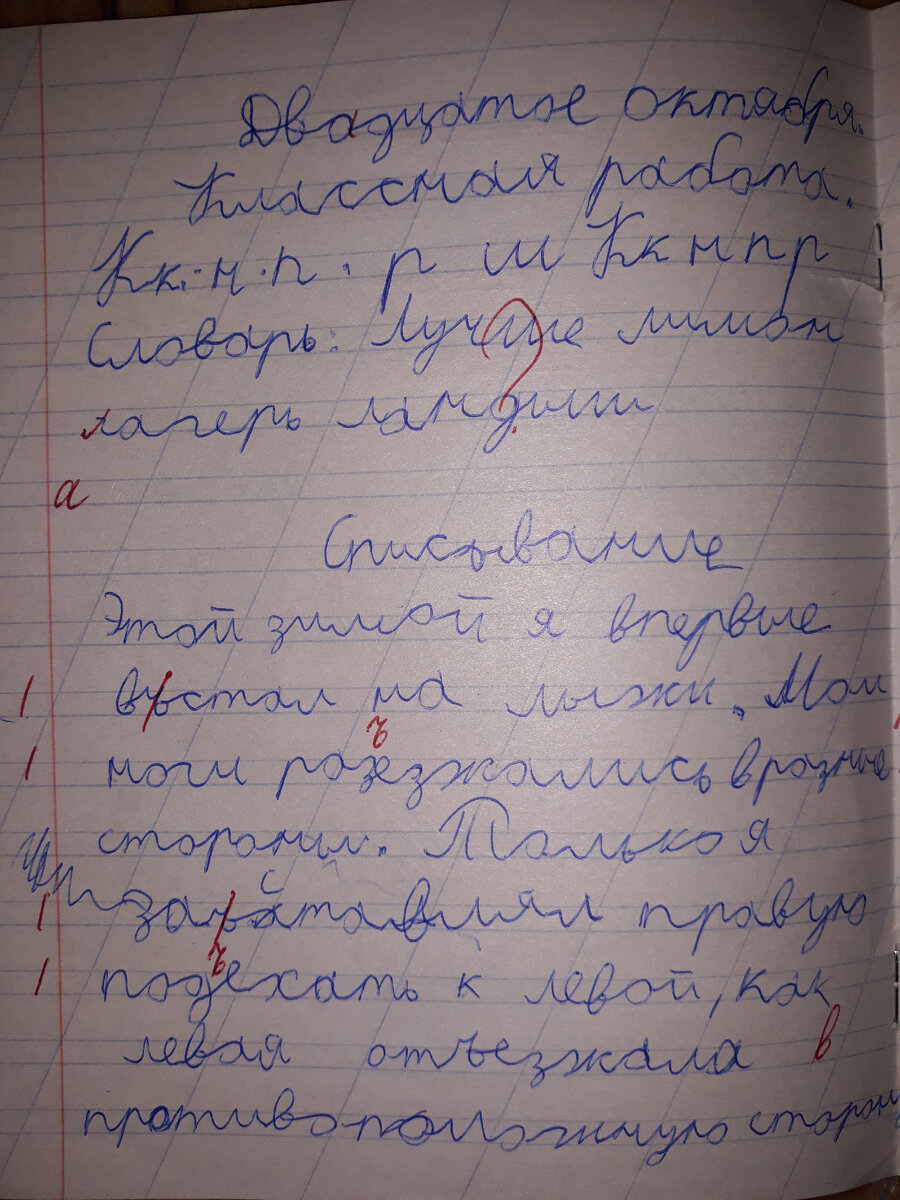 Двадцатое октября.
Классная работа.
Кк. н. п. р ш Кк н п р
Словарь: Лучше лимон
лагерь ландыш
а
Списывание
Этой зимой я впервые
встал на лыжи. Мои
ноги разъезжались в разные
стороны. Только я
заставлял правую
подъехать к левой, как
левая отъезжала в
противоположную сторону